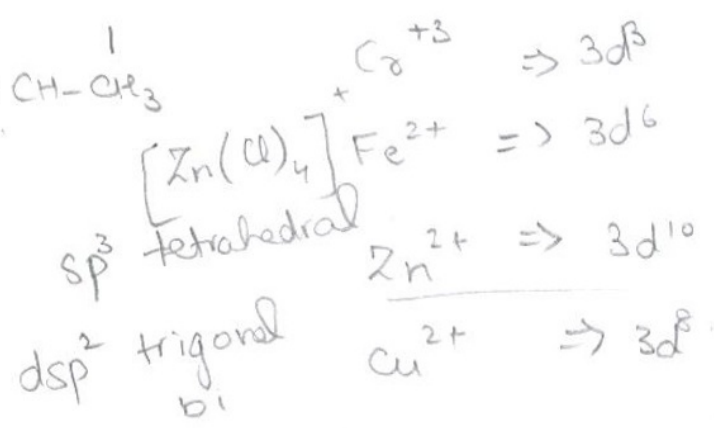 |
CH-CH3
[Zn(Cl)4]+
sp3 tetrahedral
dsp2 trigonal
bi
Cr+3 => 3d3
Fe2+ => 3d6
Zn2+ => 3d10
Cu2+ => 3d8